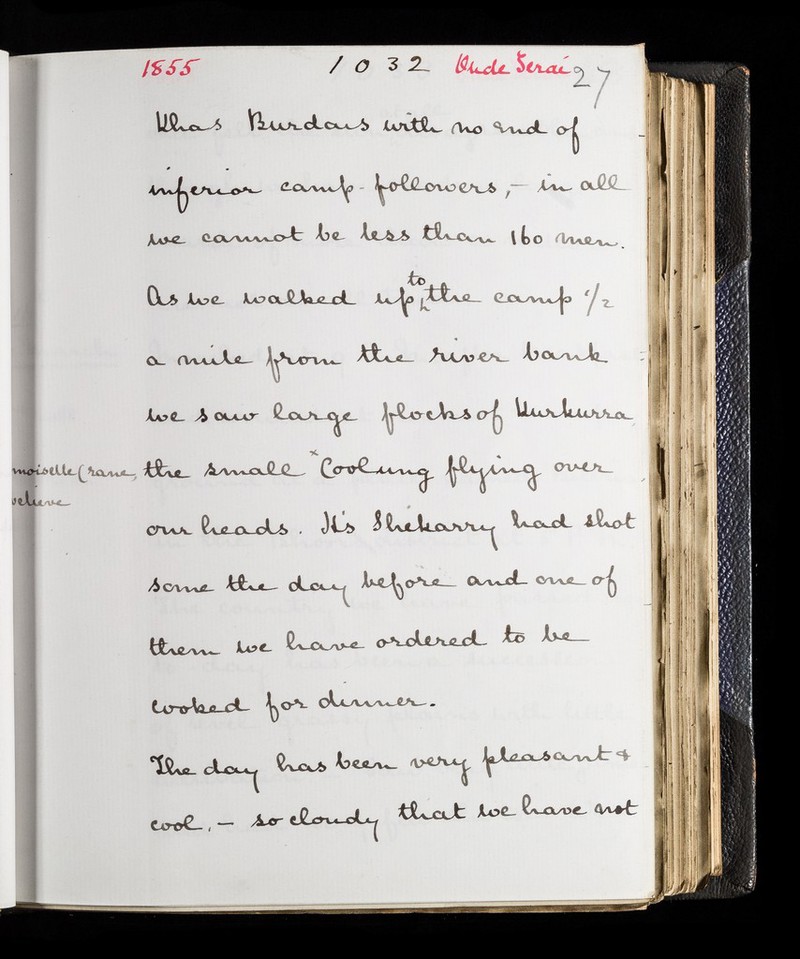 1855 1032 Oude Terai 27
Khas Burdars with no end of
inferior camp-followers,— in all
we cannot be less than 160 men.
As we walked up to the camp 1/2
a mile from the river bank
we saw large flocks of Kurkurra
moiselle Crane, the small ˣCoolung flying over
believe
our heads. H's Shekarry had shot
some the day before and one of
them we have ordered to be
cooked for dinner.
The day has been very pleasant &
cool, — so cloudy that we have not